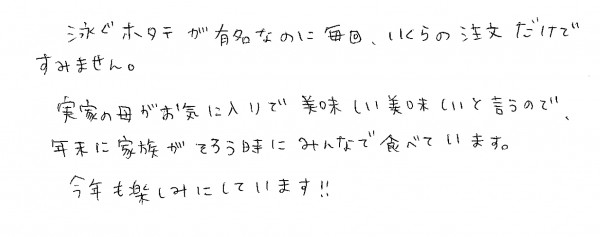 泳ぐホタテが有名なのに毎回、いくらの注文だけで
すみません。
実家の母がお気に入りで美味しい美味しいと言うので、
年末に家族がそろう時にみんなで食べています。
今年も楽しみにしています!!